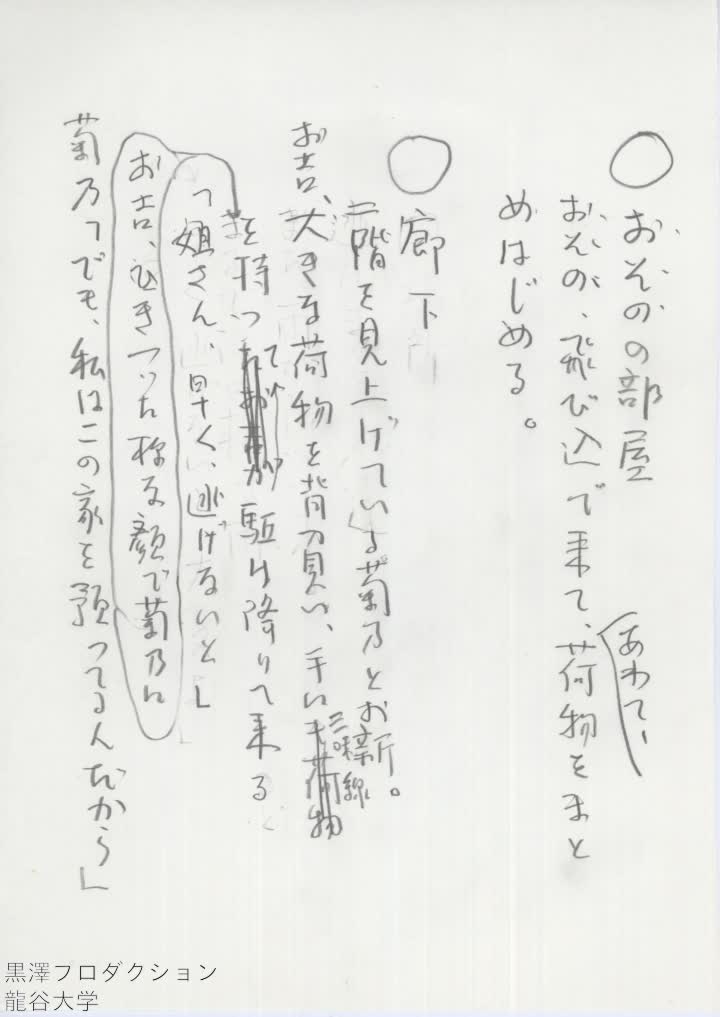 ○おそのの部屋
おその、飛び込で来て、あわて、荷物をまと
めはじめる。
○廊下
二階を見上げている菊乃とお新。
お吉、大きな荷物を背負い、手に三味線
を持って駈け降りて来る
「姐さん、早く、逃げないと」
お吉、むきつた様な顔で菊乃に
菊乃「でも、私はこの家を預つてるんだから」
黒澤プロダクション
龍谷大学